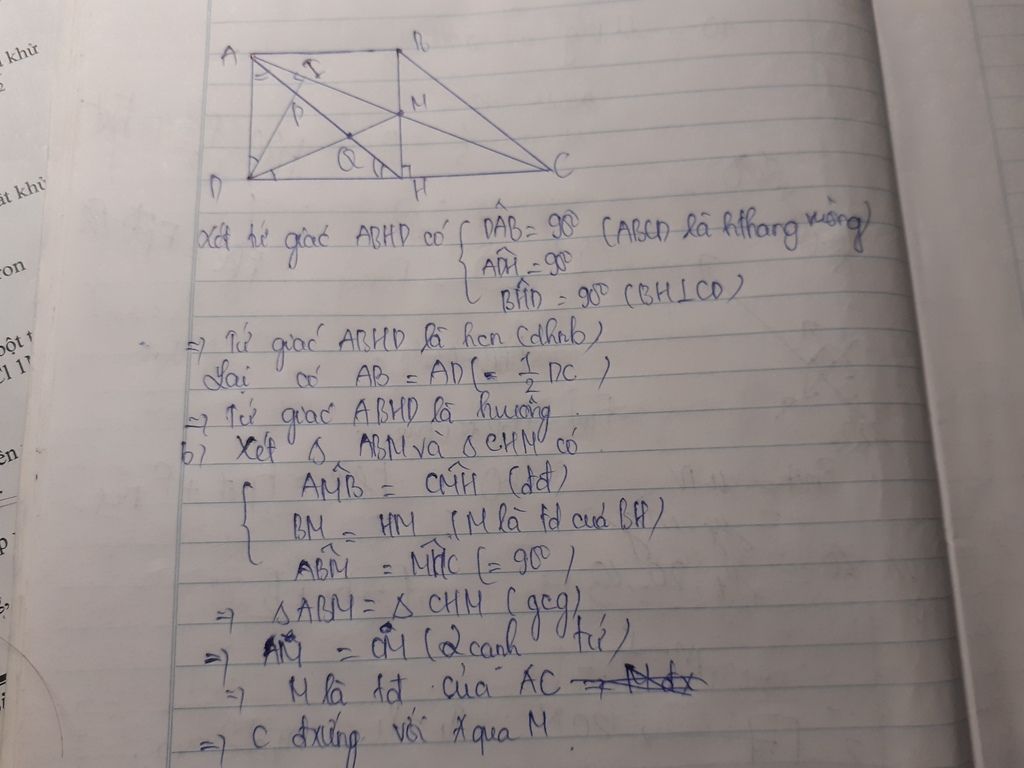 A
B
I
M
P
Q
D
H
C
Xét tứ giác ABHD có { DÂB = 90° (ABCD là hthang vuông)
AD̂H = 90°
BĤD = 90° (BH⊥CD)
=> Tứ giác ABHD là hcn (dhnb)
Lại có AB = AD (= 1/2 DC)
=> Tứ giác ABHD là hvuông
b) Xét Δ ABM và Δ CHM có
{ AM̂B = CM̂H (đđ)
BM = HM (M là tđ của BH)
AB̂M = MĤC (= 90°)
=> ΔABM = Δ CHM (gcg)
=> AM = CM (2 cạnh tứ)
=> M là tđ của AC
=> C đxứng với A qua M
l khử
2
ất khử
ron
bột t
ên